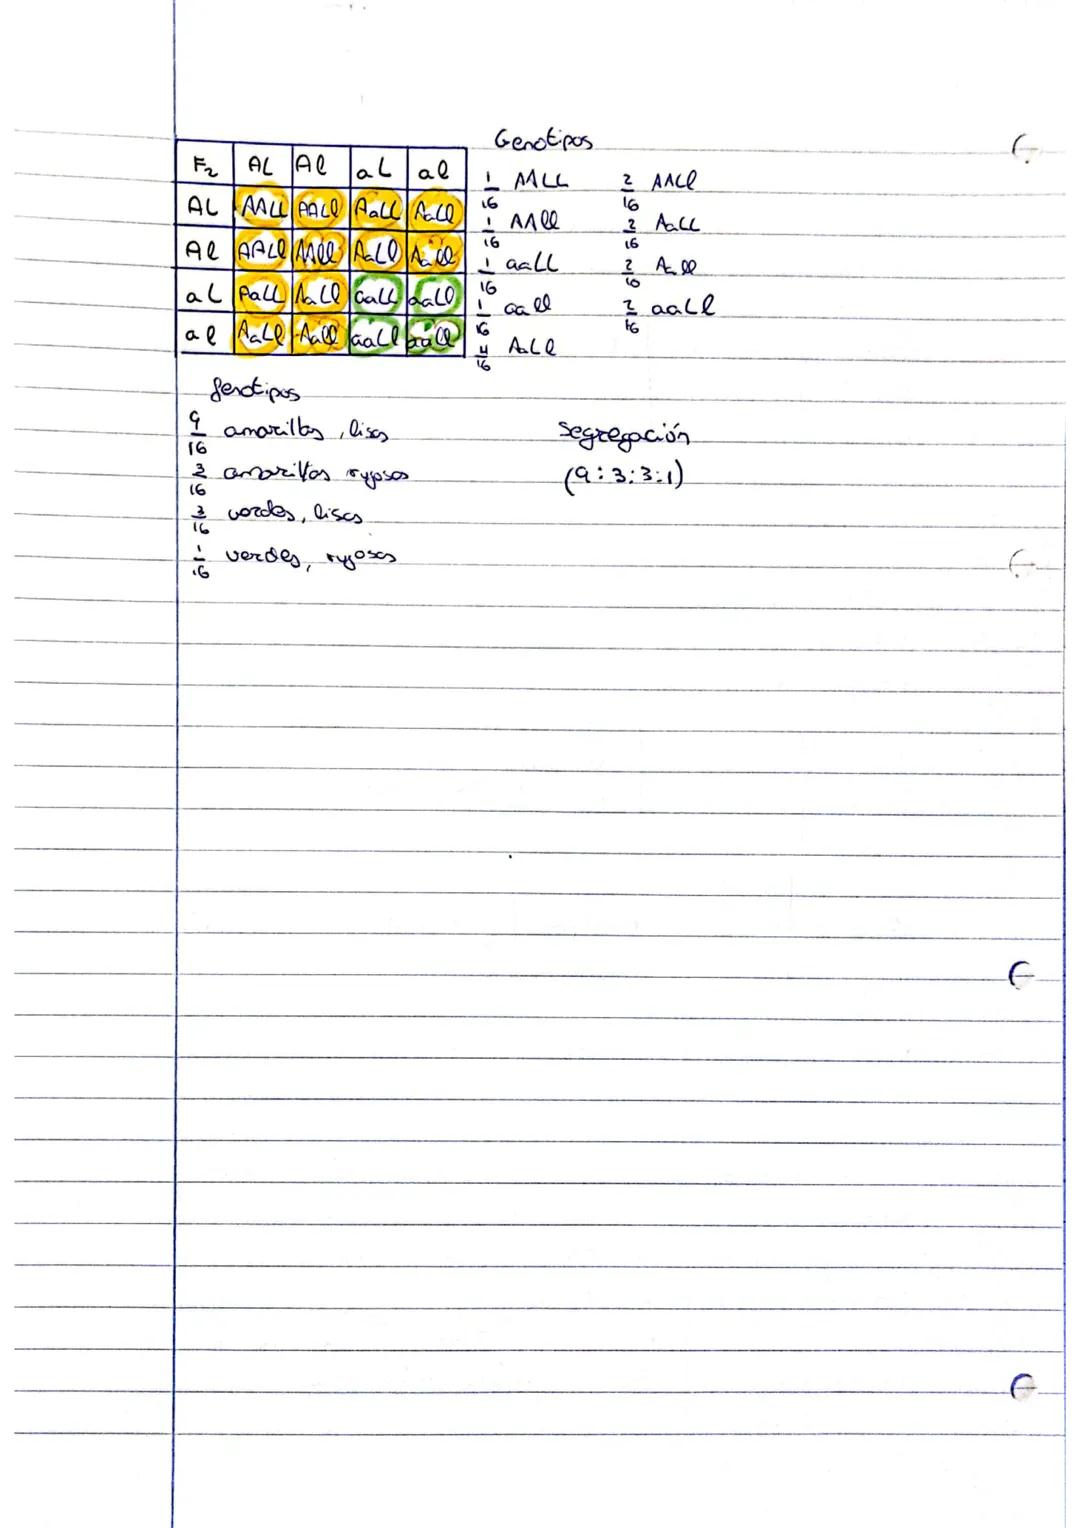 Genotipos
F2 AL Al aL al
AL AALL AALl AaLL AaLl
Al AALl AAll AaLl Aall
aL AaLL AaLl aaLL aaLl
al AaLl Aall aaLl aall
1/16 AALL 2/16 AALl
1/16 AAll 2/16 AaLL
1/16 aaLL 2/16 Aall
1/16 aall 2/16 aaLl
4/16 AaLl
fenotipos
9/16 amarillos, lisos
3/16 amarillos rugosos
3/16 verdes, lisos
1/16 verdes, rugosos
Segregación
(9:3:3:1)